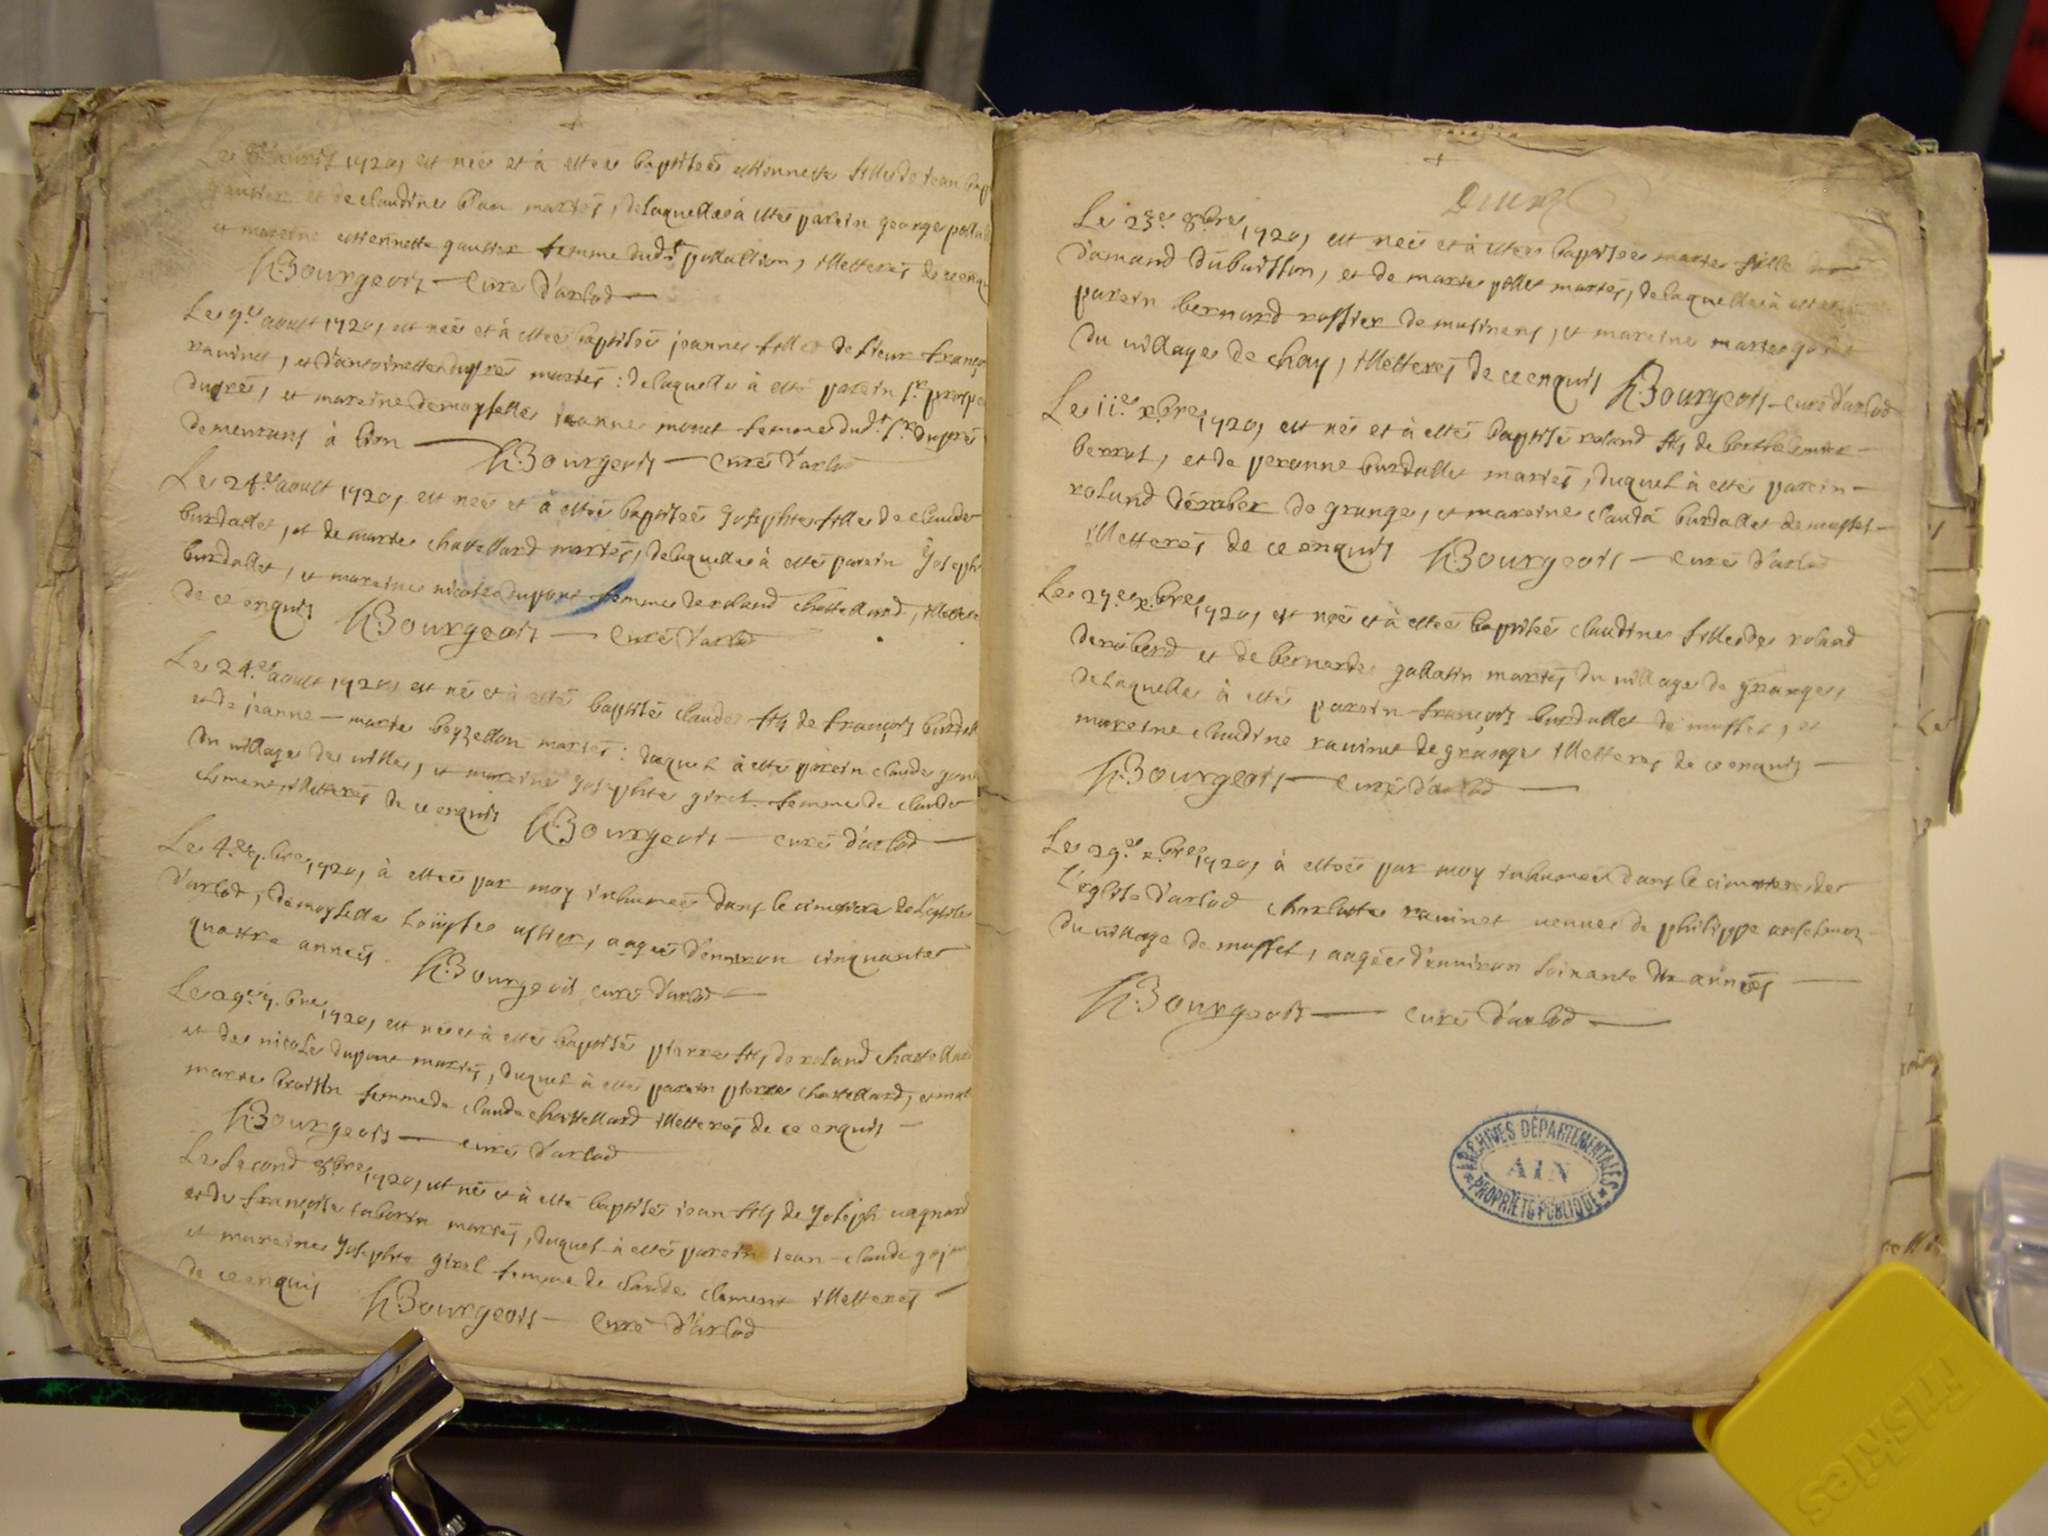 est née et à esteé baptiseé estiennette fille de iean bap
gautier et de claudine blan mariés, delaquelle à esté parein george
et mareine estiennette gautier femme dudt pollallion, illetterés de ce enq
h.Bourgeois curé d'arlod
Le 9.e aoust 1720, est née et à esteé baptiseé jeanne fille de sieur franço
rauinet, et d'antoinette dupré mariés: delaquelle à esté parein sr. prospe
dupré, et mareine demoyselle ieanne monet femme dudt. sr. dupré
demeurans à lion h.Bourgeois curé d'arlod
Le 24.e aoust 1720, est née et à esteé baptiseé Josephte fille de claude
burdallet, et de marie chastellard mariés, delaquelle à esté parein Joseph
burdallet, et mareine nicole dupont femme de roland chastellard, illettere
de ce enquis h.Bourgeois curé d'arlod
Le 24.e aoust 1720, est né et à esté baptisé claude fils de françois burdall
et de jeanne-marie beyzellon mariés: duquel à esté parein claude
du village de ville, et mareine Josephte girel femme de claude
clement, illetterés de ce enquis h.Bourgeois curé d'arlod
Le 4.e 7.bre 1720, à esteé par moy inhumeé dans le cimetiere de l'eglise
d'arlod, demoyselle Loüyse assier, aageé d'enuiron cinquante
quattre anneés. h.Bourgeois curé d'arlod
Le 29.e 7.bre 1720, est né et à esté baptisé pierre fils de roland chastellard
et de nicole dupont mariés, duquel à esté parein pierre chastellard, et mar
marie femme de claude chastellard illetterés de ce enquis
h.Bourgeois curé d'arlod
Le second 8bre 1720, est né et à esté baptisé iean fils de Joseph uagnard
et de françoise taborin mariés, duquel à esté parein iean-claude
et mareine Josephte girel femme de claude clement illetterés
de ce enquis h.Bourgeois curé d'arlod
Le 23.e 8bre 1720, est née et à esteé baptiseé marie fille
d'amand dubuisson, et de marie mariés, delaquelle à esté
parein bernard rossier de musinens, et mareine marie
du village de chay, illetterés de ce enquis h.Bourgeois curé d'arlod
Le 11.e x.bre 1720, est né et à esté baptisé roland fils de barthelemie
berrot, et de peronne burdallet mariés, duquel à esté parein
roland déraber de grange, et mareine clauda burdallet de mussel
illetterés de ce enquis h.Bourgeois curé d'arlod
Le 27.e x.bre 1720, est née et à esteé baptiseé claudine fille de roland
deraberd et de bernarde gallatin mariés du village de granges,
delaquelle à esté parein françois burdallet de mussel, et
mareine claudine rauinet de grange illetterés de ce enquis
h.Bourgeois curé d'arlod
Le 29.e x.bre 1720, à esteé par moy inhumeé dans le cimetiere de
l'eglise d'arlod charlotte rauinet ueuue de philippe
du village de mussel, aageé d'enuiron soixante dix anneés
h.Bourgeois curé d'arlod
ARCHIVES DÉPARTEMENTALES
AIN
PROPRIÉTÉ PUBLIQUE
Friskies